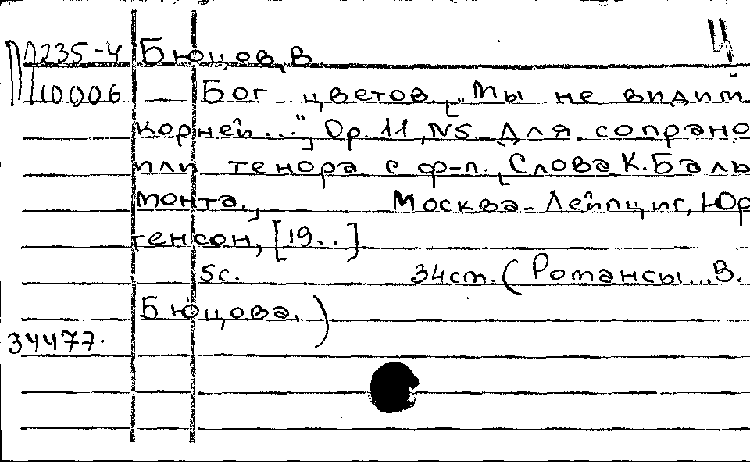 Ч
М235-4 Бюцов, В
М10006 — Бог цветов, „Мы не видим
корней...", Ор. 11, N5 Для сопрано
или тенора с ф-п. Слова К. Баль
монта. Москва-Лейпциг, Юр
генсон, [19..]
5с. 34см. (Романсы... В.
Бюцова.)
34477.